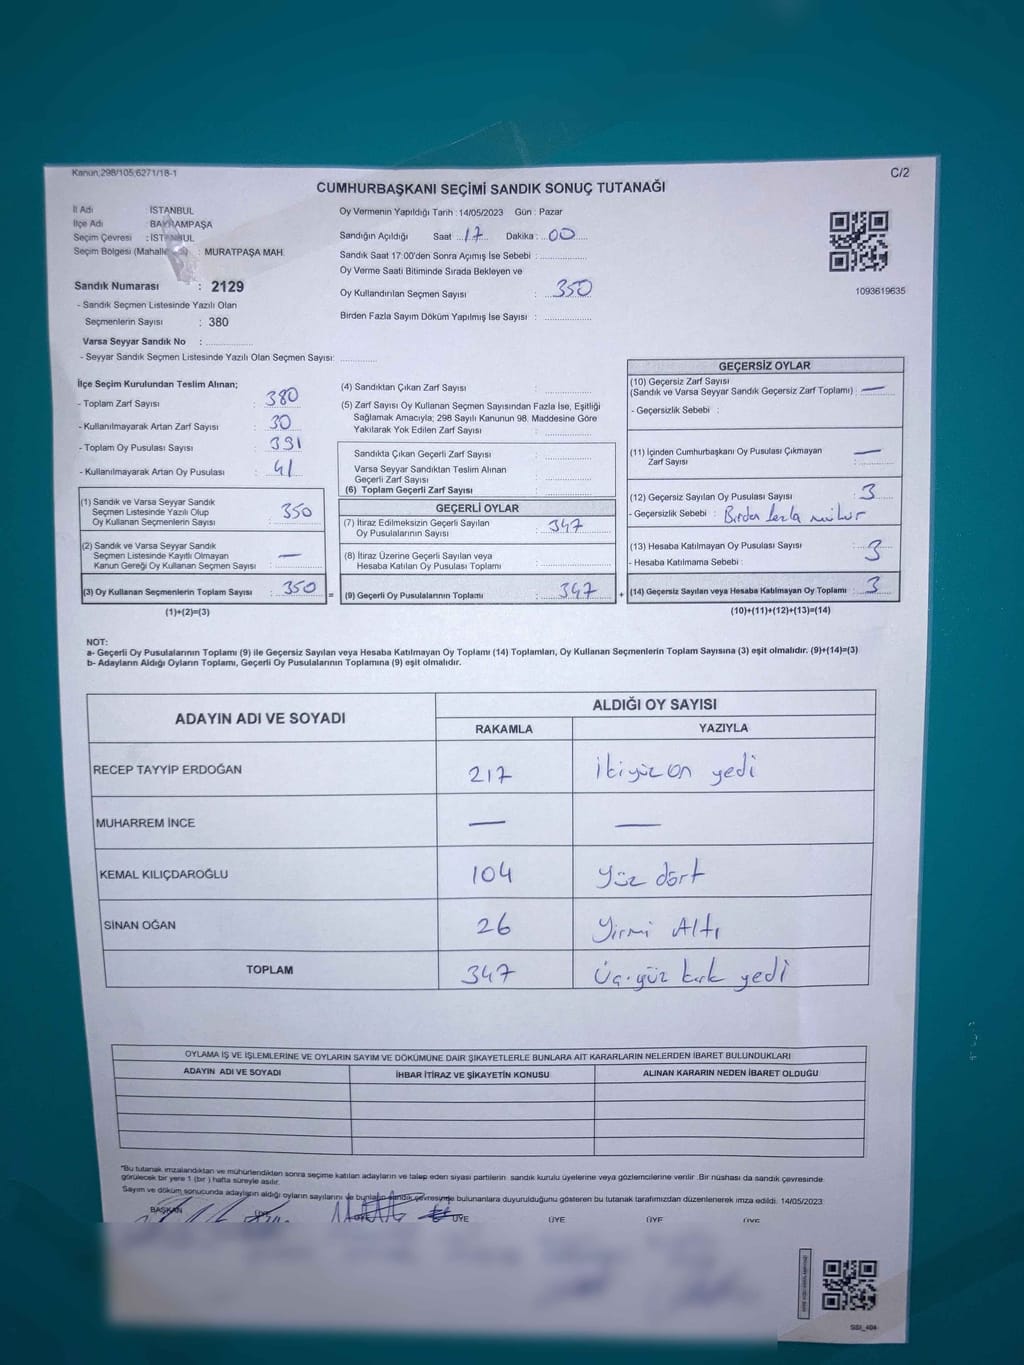 Kanun;298/105;6271/18-1
C/2
CUMHURBAŞKANI SEÇİMİ SANDIK SONUÇ TUTANAĞI
İl Adı İSTANBUL
İlçe Adı BAYRAMPAŞA
Seçim Çevresi : İSTANBUL
Seçim Bölgesi : MURATPAŞA MAH.
Sandık Numarası : 2129
- Sandık Seçmen Listesinde Yazılı Olan
Seçmenlerin Sayısı : 380
Varsa Seyyar Sandık No :
- Seyyar Sandık Seçmen Listesinde Yazılı Olan Seçmen Sayısı:
Oy Vermenin Yapıldığı Tarih : 14/05/2023 Gün : Pazar
Sandığın Açıldığı Saat 17 Dakika : 00
Sandık Saat 17:00'den Sonra Açımış İse Sebebi :
Oy Verme Saati Bitiminde Sırada Bekleyen ve
Oy Kullandırılan Seçmen Sayısı : 350
Birden Fazla Sayım Döküm Yapılmış İse Sayısı :
1093619635
İlçe Seçim Kurulundan Teslim Alınan;
- Toplam Zarf Sayısı : 380
- Kullanılmayarak Artan Zarf Sayısı : 30
- Toplam Oy Pusulası Sayısı : 391
- Kullanılmayarak Artan Oy Pusulası : 41
(1) Sandık ve Varsa Seyyar Sandık
Seçmen Listesinde Yazılı Olup
Oy Kullanan Seçmenlerin Sayısı : 350
(2) Sandık ve Varsa Seyyar Sandık
Seçmen Listesinde Kayıtlı Olmayan
Kanun Gereği Oy Kullanan Seçmen Sayısı : —
(3) Oy Kullanan Seçmenlerin Toplam Sayısı : 350 =
(1)+(2)=(3)
(4) Sandıktan Çıkan Zarf Sayısı :
(5) Zarf Sayısı Oy Kullanan Seçmen Sayısından Fazla İse, Eşitliği
Sağlamak Amacıyla; 298 Sayılı Kanunun 98. Maddesine Göre
Yakılarak Yok Edilen Zarf Sayısı :
Sandıkta Çıkan Geçerli Zarf Sayısı :
Varsa Seyyar Sandıktan Teslim Alınan
Geçerli Zarf Sayısı :
(6) Toplam Geçerli Zarf Sayısı :
GEÇERLİ OYLAR
(7) İtiraz Edilmeksizin Geçerli Sayılan
Oy Pusulalarının Sayısı : 347
(8) İtiraz Üzerine Geçerli Sayılan veya
Hesaba Katılan Oy Pusulası Toplamı :
(9) Geçerli Oy Pusulalarının Toplamı : 347 +
GEÇERSİZ OYLAR
(10) Geçersiz Zarf Sayısı
(Sandık ve Varsa Seyyar Sandık Geçersiz Zarf Toplamı) : —
- Geçersizlik Sebebi :
(11) İçinden Cumhurbaşkanı Oy Pusulası Çıkmayan
Zarf Sayısı : —
(12) Geçersiz Sayılan Oy Pusulası Sayısı : 3
- Geçersizlik Sebebi : Birden fazla mühür
(13) Hesaba Katılmayan Oy Pusulası Sayısı : 3
- Hesaba Katılmama Sebebi :
(14) Geçersiz Sayılan veya Hesaba Katılmayan Oy Toplamı : 3
(10)+(11)+(12)+(13)=(14)
NOT:
a- Geçerli Oy Pusulalarının Toplamı (9) ile Geçersiz Sayılan veya Hesaba Katılmayan Oy Toplamı (14) Toplamları, Oy Kullanan Seçmenlerin Toplam Sayısına (3) eşit olmalıdır. (9)+(14)=(3)
b- Adayların Aldığı Oyların Toplamı, Geçerli Oy Pusulalarının Toplamına (9) eşit olmalıdır.
ADAYIN ADI VE SOYADI ALDIĞI OY SAYISI
RAKAMLA YAZIYLA
RECEP TAYYİP ERDOĞAN 217 ikiyüz on yedi
MUHARREM İNCE — —
KEMAL KILIÇDAROĞLU 104 Yüz dört
SİNAN OĞAN 26 Yirmi Altı
TOPLAM 347 Üç.yüz kırk yedi
OYLAMA İŞ VE İŞLEMLERİNE VE OYLARIN SAYIM VE DÖKÜMÜNE DAİR ŞİKAYETLERLE BUNLARA AİT KARARLARIN NELERDEN İBARET BULUNDUKLARI
ADAYIN ADI VE SOYADI İHBAR İTİRAZ VE ŞİKAYETİN KONUSU ALINAN KARARIN NEDEN İBARET OLDUĞU
"Bu tutanak imzalandıktan ve mühürlendikten sonra seçime katılan adayların ve talep eden siyasi partilerin sandık kurulu üyelerine veya gözlemcilerine verilir. Bir nüshası da sandık çevresinde
görülecek bir yere 1 (bir ) hafta süreyle asılır.
Sayım ve döküm sonucunda adayların aldığı oyların sayılarını ve bunların sandık çevresinde bulunanlara duyurulduğunu gösteren bu tutanak tarafımızdan düzenlenerek imza edildi. 14/05/2023
BAŞKAN ÜYE ÜYE ÜYE ÜYE
SSI_404